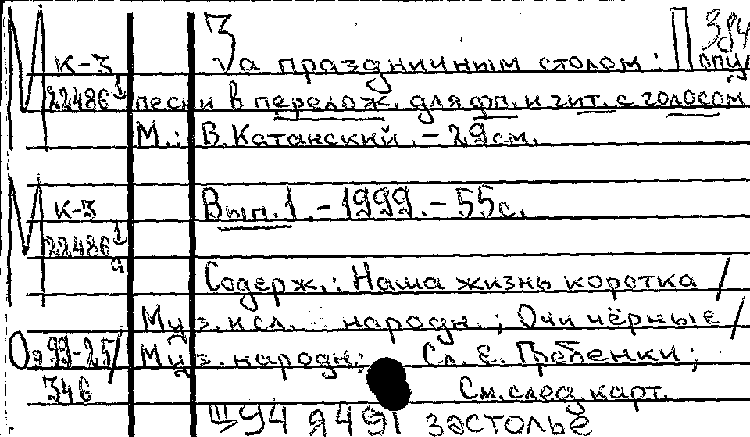 384
К-3 За праздничным столом: Попул
22486 песни в перелож. для фп. и гит. с голосом
М.: В. Катанский. - 29 см.
К-3 Вып. 1. - 1999. - 55 с.
22486
Содерж.: Наша жизнь коротка /
Муз. и сл. народн.; Очи чёрные /
99-25/ Муз. народн; Сл. Е. Гребенки;
346 См. след. карт.
94 Я491 застолье